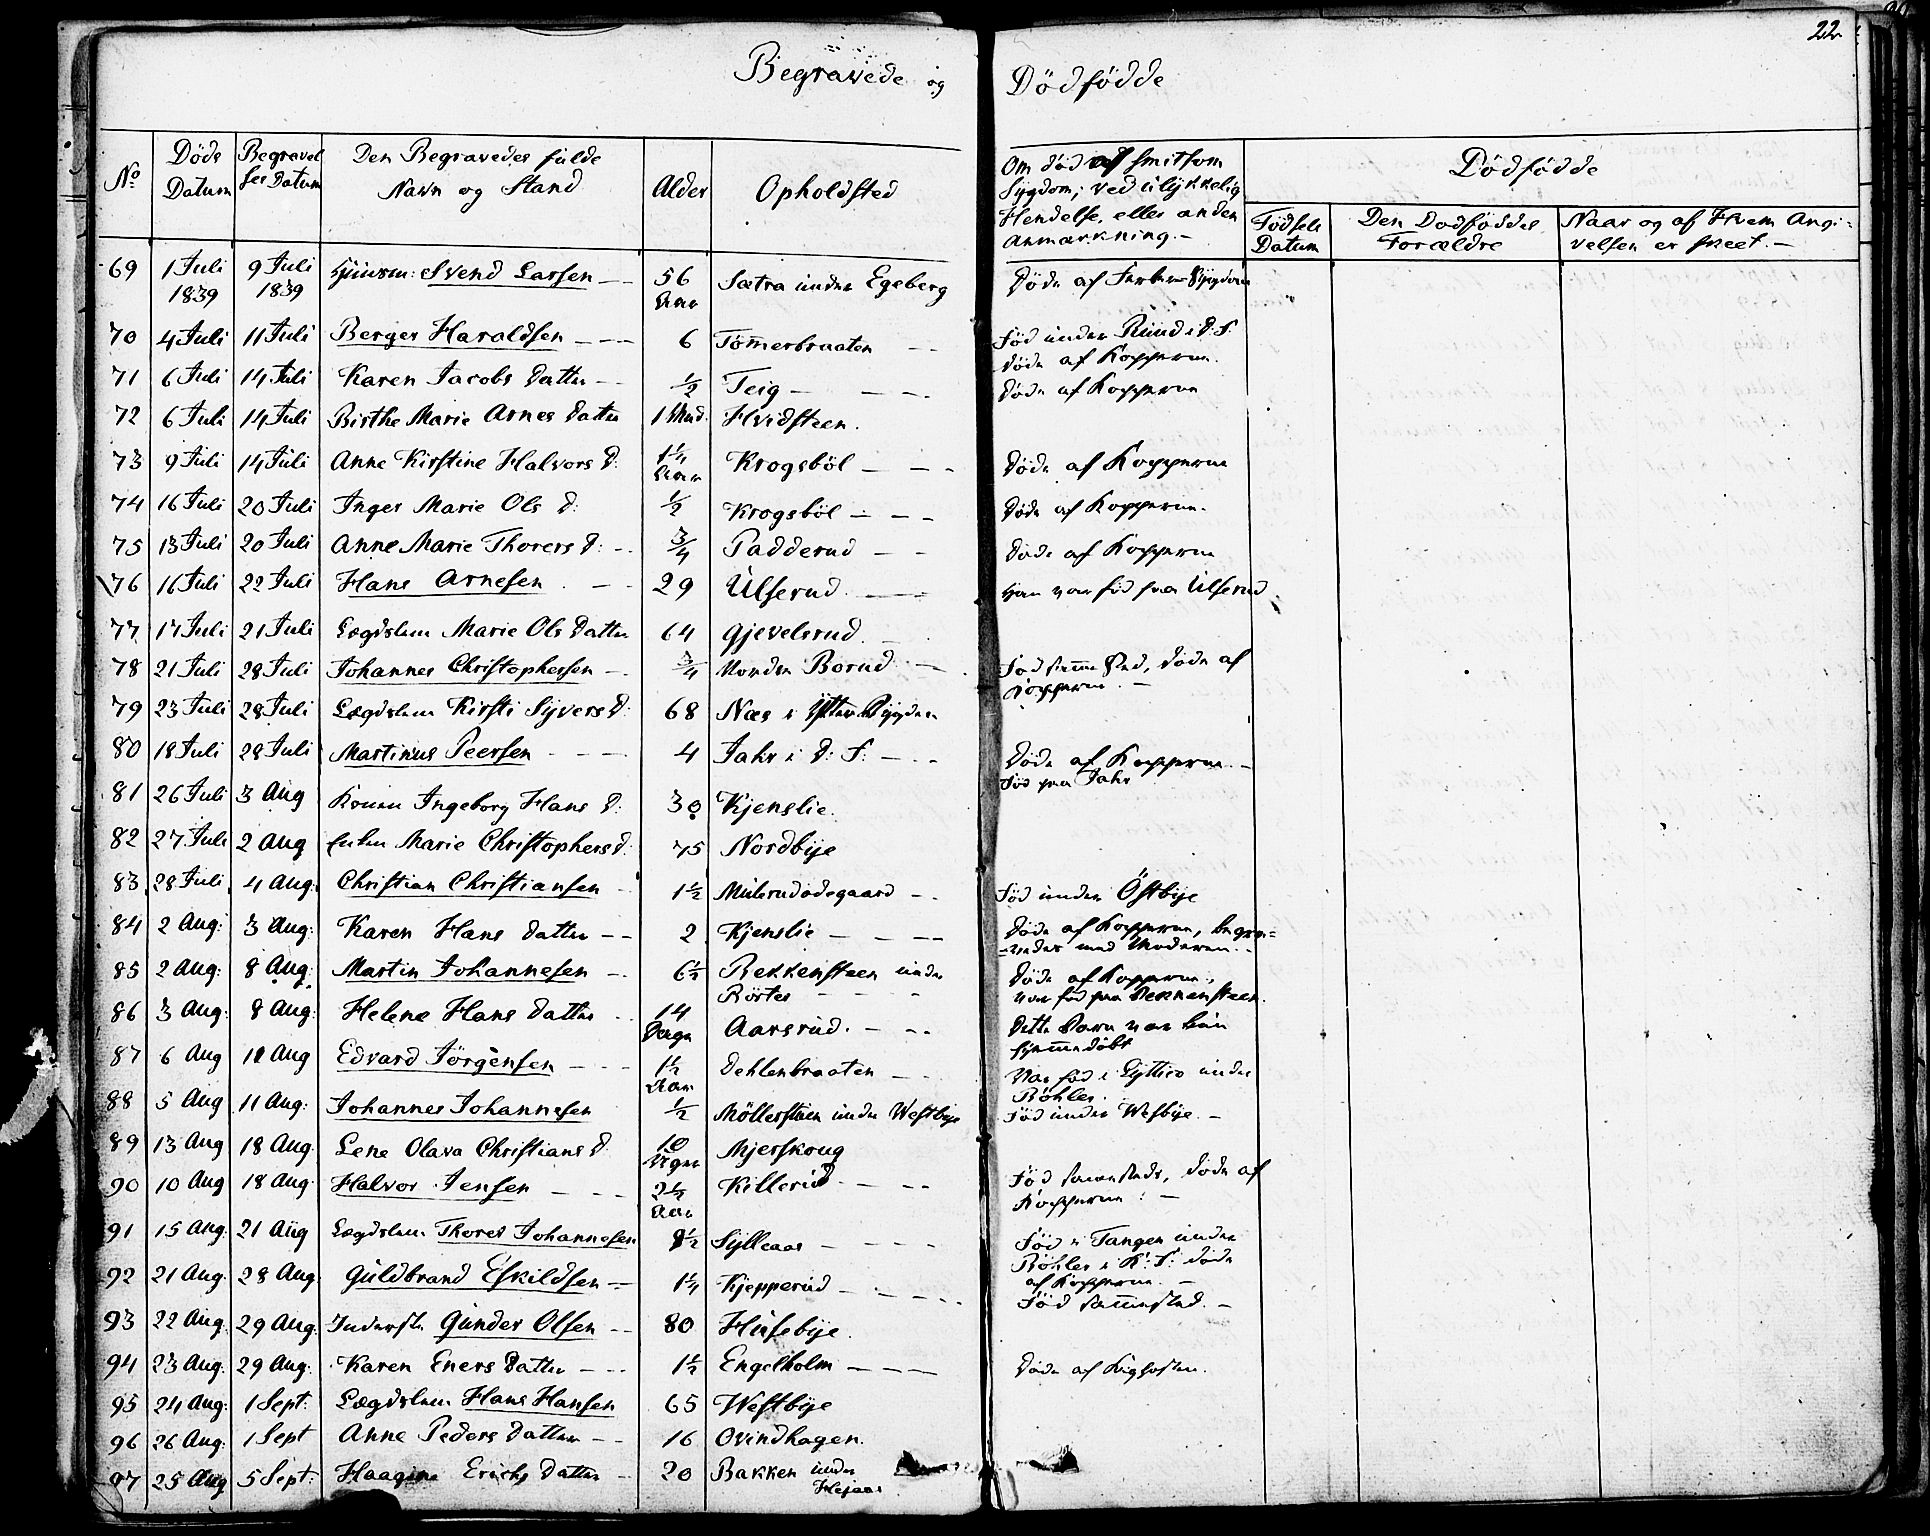 22
Begravede og Dödfödde
No
Döds Datum
Begravelses Datum
Den Begravedes fulde Navn og Stand
Alder
Opholdsted
Om död af smitsom Sygdom; ved ulykkelig Hendelse, eller anden Anmærkning.-
Dödfödde
Födsels Datum
Den Dødföddes Forældre
Naar og af Hvem Angivelsen er skeet.-
69 1 Juli 1839 9 Juli 1839 Huusm: Svend Larsen 56 Aar Sætra under Egeberg Döde af
70 4 Juli 11 Juli Berger Haraldsen 6 Tömerbraaten Föd under Ruud i D: S: döde af Kopperne.
71 6 Juli 14 Juli Karen Jacobs Datter ½ Teig Döde af Kopperne
72 6 Juli 14 Juli Birthe Marie Arnes Datter 1 Mnd. Hvidsteen.
73 9 Juli 14 Juli Anne Kirstine Halvors D: 1¼ Aar Krogsböl Döde af Kopperne
74 16 Juli 20 Juli Inger Marie Ols D: ½ Krogsböl Döde af Kopperne.
75 13 Juli 20 Juli Anne Marie Thorers D: ¾ Padderud Döde af Kopperne
76 16 Juli 22 Juli Hans Arnesen 29 Ulserud Han var föd paa Ulserud.
77 17 Juli 21 Juli Lægdslem Marie Ols Datter 64 Gjevelsrud
78 21 Juli 28 Juli Johannes Christophersen ¾ Nordre Borud Föd samme Sted, döde af Kopperne.
79 23 Juli 28 Juli Lægdslem Kirsti Syvers D: 68 Næs i Ytter Bygden
80 18 Juli 28 Juli Martinus Peersen 4 Jahr i D: S: Döde af Kopperne. Föd paa Jahr
81 26 Juli 3 Aug Konen Ingeborg Hans D: 30 Kjenslie.
82 27 Juli 2 Aug Enken Marie Christophers D: 75 Nordbye
83 28 Juli 4 Aug: Christian Christiansen 1½ Mulerudödegaard Föd under Östbye
84 2 Aug: 3 Aug: Karen Hans Datter 2 Kjenslie Döde af Kopperne, begravedes med Moderen.
85 2 Aug: 8 Aug: Martin Johannesen 6½ Bekkensteen under Börter Döde af Kopperne, var föd paa Bekkensteen.
86 3 Aug: 8 Aug: Helene Hans Datter 14 Dage Aarsrud. Dette Barn var kun hjemmedöbt
87 6 Aug 11 Aug Edvard Jörgensen 1½ Aar Dehlenbraaten Var föd i under Böhler.
88 5 Aug 11 Aug: Johannes Johannesen ½ Möllerstuen under Westbye Föd under Wesbye.
89 13 Aug 18 Aug: Lene Olava Christians D 10 Uger Mjerskoug
90 10 Aug 18 Aug: Halvor Jensen 2½ Aar Killerud Föd sammesteds, döde af Kopperne.
91 15 Aug: 21 Aug Lægdslem Thorer Johannesen 8½ Sylleaas Föd i Tangen under Böhler i K: S: döde af Kopperne.
92 21 Aug: 28 Aug: Guldbrand Eskildsen 1¼ Kjepperud Föd sammested.
93 22 Aug: 29 Aug: Inderste Gunder Olsen 80 Husebye.
94 23 Aug: 29 Aug: Karen Eners Datter 1½ Engelholm Döde af Kighosten.
95 24 Aug: 1 Sept: Lægdslem Hans Hansen 65 Westbye
96 26 Aug: 1 Sept Anne Peders Datter 16 Ovindhagen.
97 25 Aug 5 Sept: Haagine Erichs Datter 20 Bakken under Hejaas